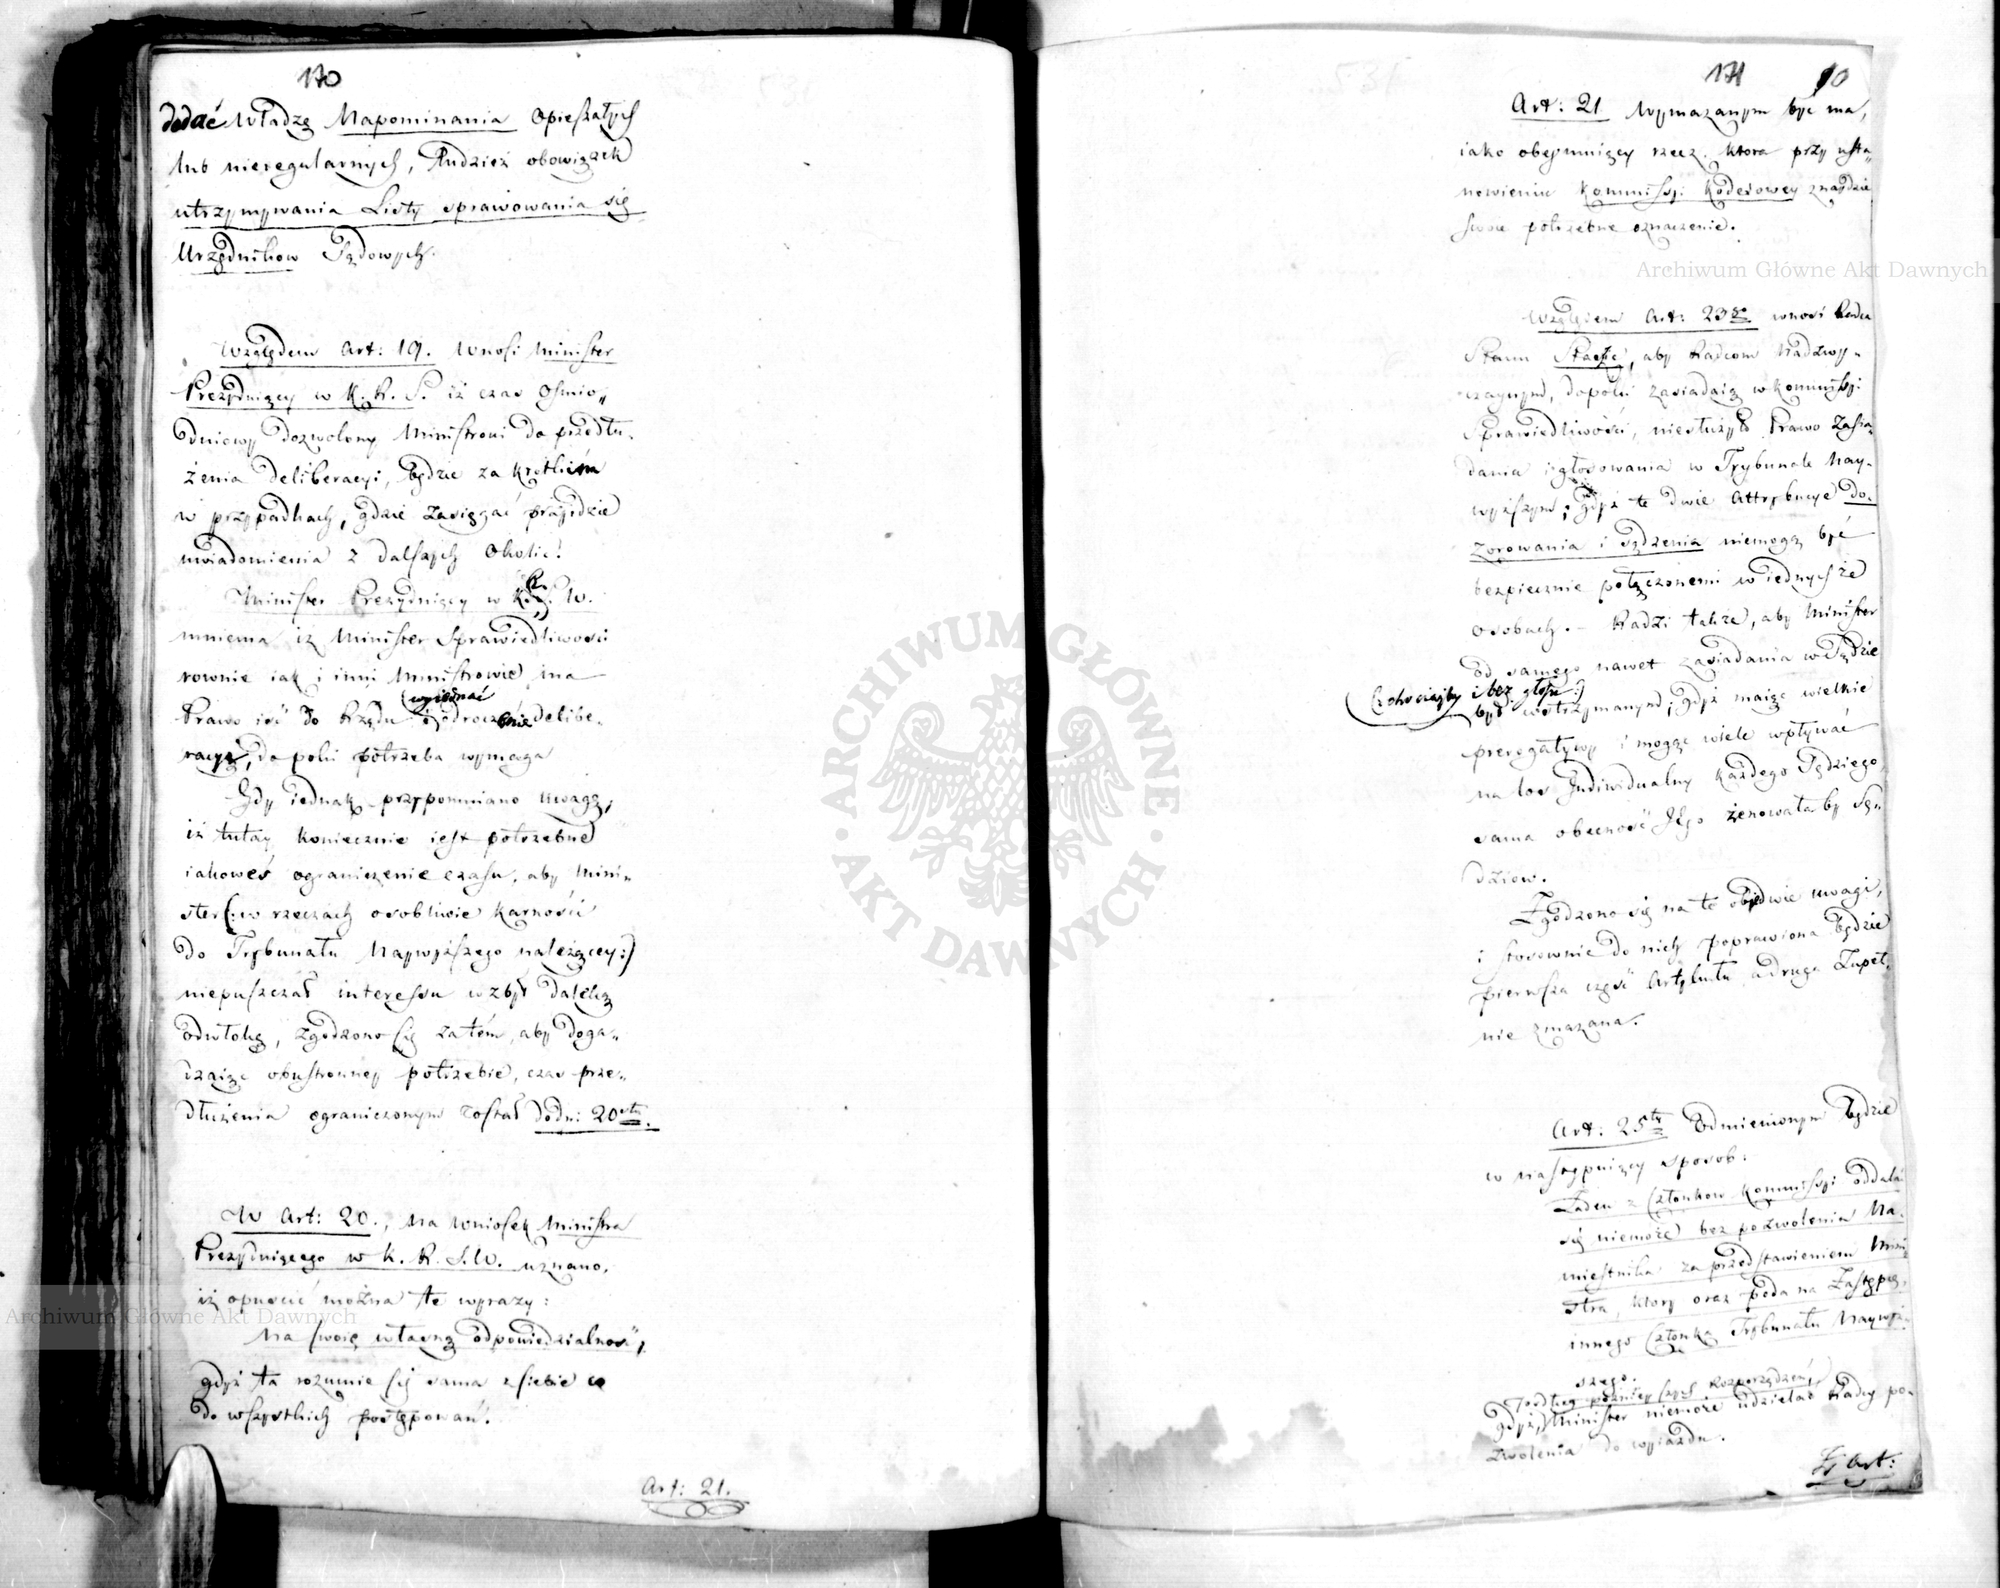 170
dodać Władzę Napominania opieszałych
lub nieregularnych, tudzież obowiązek
utrzymywania Listy sprawowania się
Urzędnikow Sądowych.
Względem Art: 19. wnosi Minister
Prezyduiący w K. R. S. iż czas ośmio„
dniowy dozwolony Ministrowi do przedłu„
żenia deliberacyi, będzie za krótkim
w przypadkach, gdzie zasięgać przyjdzie
uwiadomienia z dalszych okolic!
Minister Prezyduiący w K. R. S. W.
mniema iż Minister Sprawiedliwości
rownie iak i inni Ministrowie, ma
Prawo iść do Rządu (wyiednać
odroczenie delibe„
racyi, dopoki potrzeba wymaga
Gdy iednak przypomniano uwagę,
iż tutay koniecznie iest potrzebne
iakoweś ograniczenie czasu, aby Mini„
ster (:w rzeczach osobliwie karności
do Trybunału Naywyższego należącey:)
niepuszczał interessu w zbyt daleką
odwłokę, zgodzono się zatém, aby doga„
dzaiąc obustronney potrzebie, czas prze„
dłużenia ograniczonym został do dn: 20stu.
W Art: 20., na wniosek Ministra
Prezyduiącego w K. R. S. W. uznano,
iż opuścić można te wyrazy:
na swoię własną odpowiedzialność,
gdyż ta rozumie się sama z siebie co
do wszystkich postępowań.
Art: 21.
171 10
Art: 21 Wymazanym być ma,
iako obeymuiący rzecz, ktora przy usta„
nowieniu Kommissyi Kodexowey znaydzie
swoie potrzebne oznaczenie.
Względem Art: 23go wnosi Radca
Stanu Staszic, aby Radcom Nadzwy„
czaynym, dopoki zasiadaią w Kommissyi
Sprawiedliwości, niesłużyło Prawo Zasia„
dania i głosowania w Trybunale Nay„
wyższym; gdyż te dwie Attrybucye do„
zorowania i sądzenia niemogą być
bezpiecznie połączonemi w iednychże
osobach. – Radzi także, aby Minister
od samego nawet zasiadania w Sądzie
(:chociażby i bez głosu:)
był wstrzymanym; gdyż maiąc wielkie
prerogatywy i mogąc wiele wpływać
na los Indiwidualny każdego Sędziego,
sama obecność Jego żenowałaby Sę„
dziow.
Zgodzono się na te obydwie uwagi,
i stosownie do nich poprawiona będzie
pierwsza część Artykułu, a druga Zupeł„
nie zmazana.
Art: 25ty odmienionym będzie
w następuiący sposob:
Żaden z Członkow Kommissyi oddalać
się niemoże bez pozwolenia Na„
miestnika za przedstawieniem Mini„
stra, ktory oraz poda na Zastępcę,
innego Członka Trybunału Naywyż„
szego.
Podług poźnieyszych Rozporządzeń,
gdyż, Minister niemoże udzielać Radcy po„
zwolenia do wyiazdu.
Art:
Archiwum Główne Akt Dawnych
Archiwum Główne Akt Dawnych
ARCHIWUM GŁÓWNE
AKT DAWNYCH